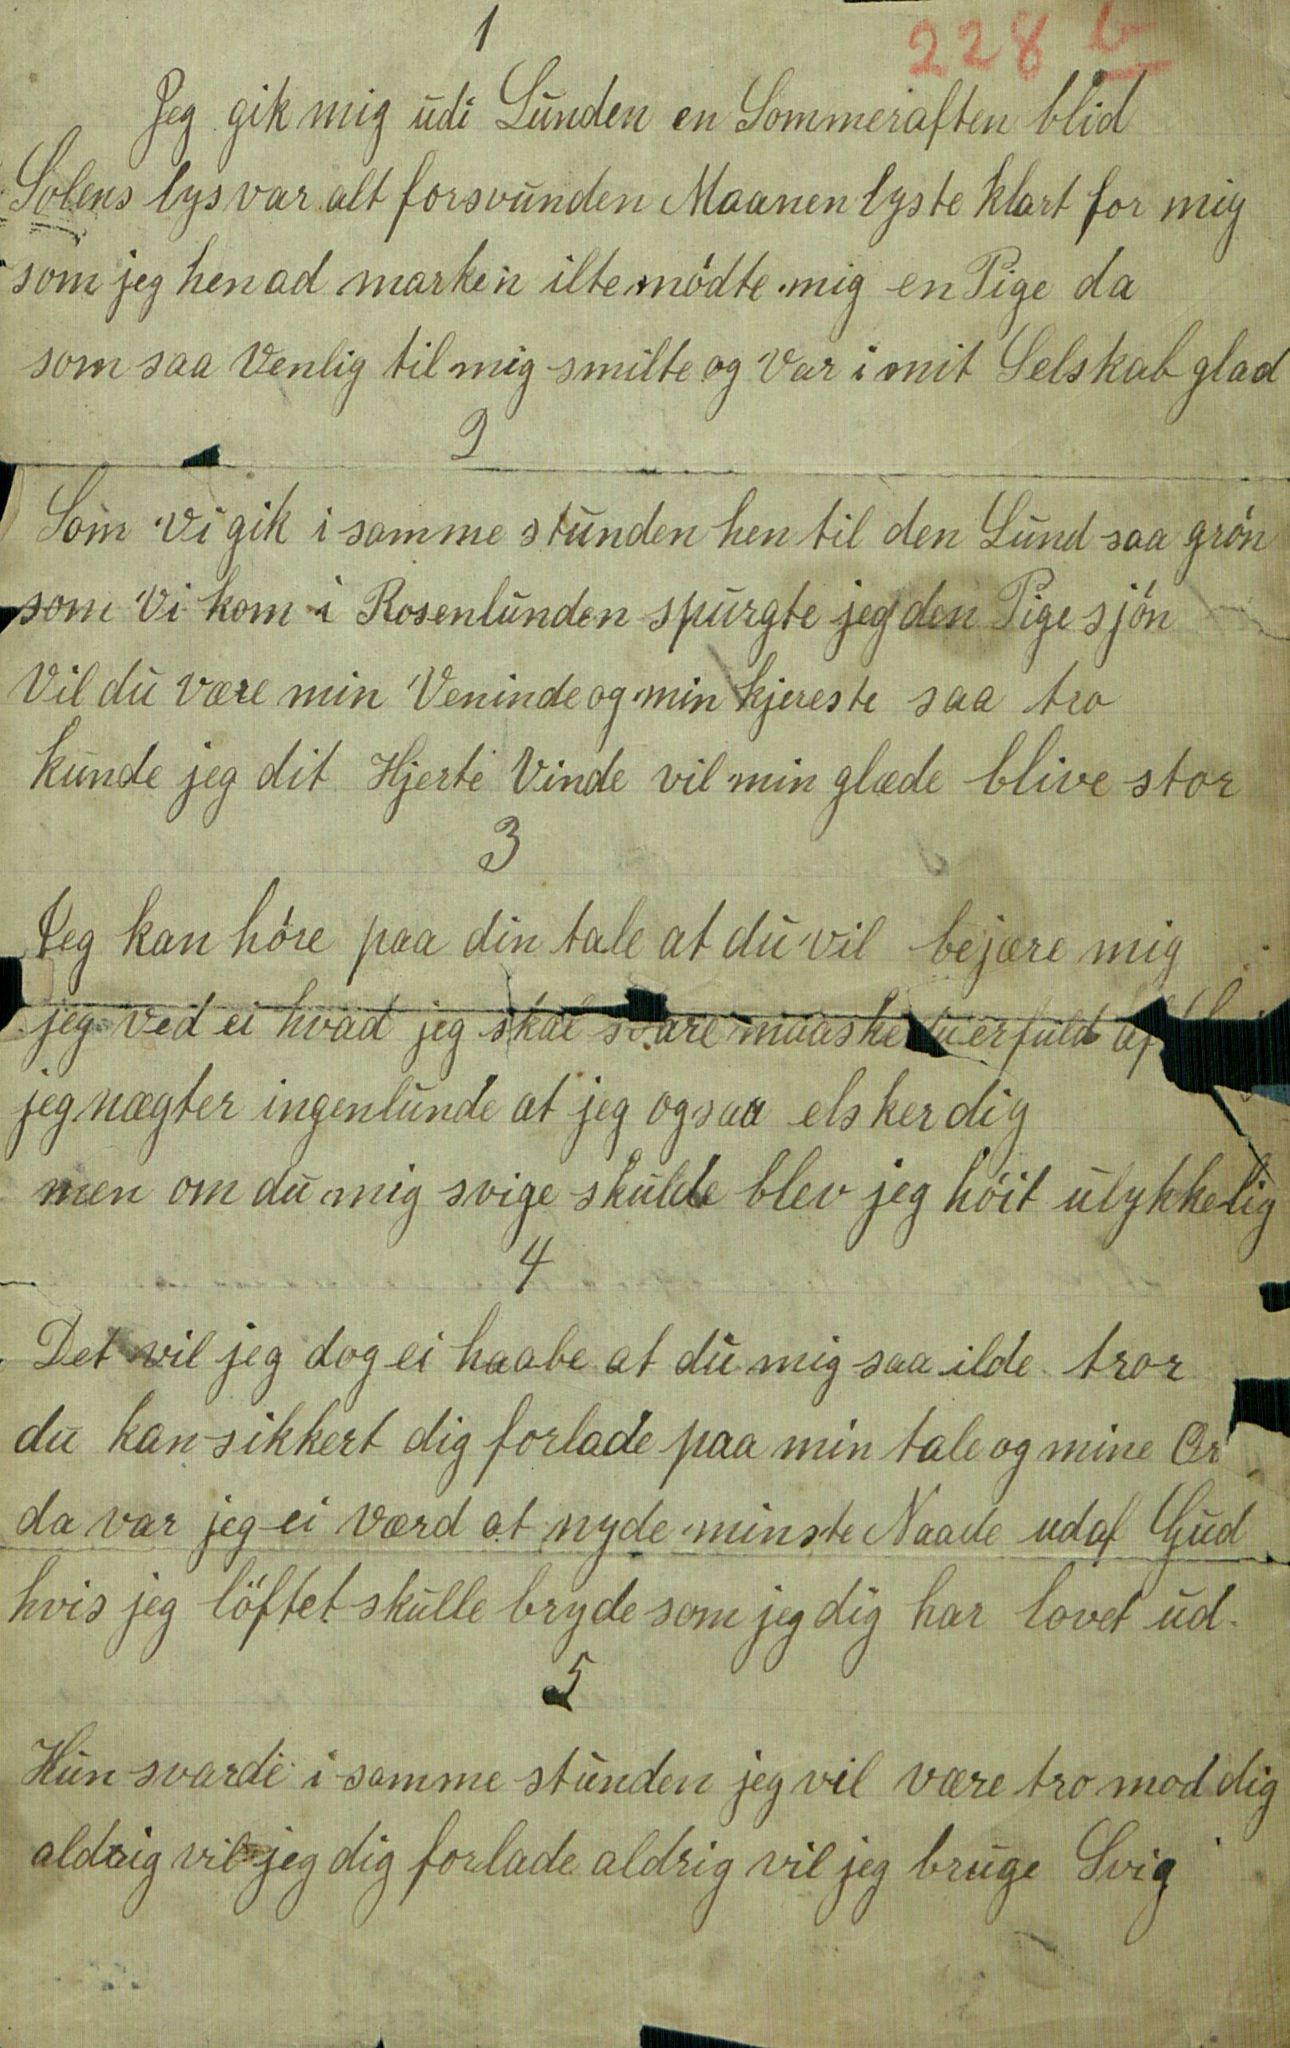 1
228 b
Jeg gik mig udi Lunden en Sommeraften blid
Solens lys var alt forsvunden Maanen lyste klart for mig
som jeg hen ad marken ilte mödte mig en Pige da
som saa Venlig til mig smilte og Var i mit Selskab glad
2
Som Vi gik i samme stunden hen til den Lund saa grön
som Vi kom i Rosenlunden spurgte jeg den Pige sjön
Vil du være min Veninde og min kjereste saa tro
kunde jeg dit Hjerte Vinde vil min glæde blive stor
3
Jeg kan höre paa din tale at du vil bejære mig
jeg ved ei hvad jeg skal svare maaske er fuld af
jeg nægter ingenlunde at jeg ogsaa elsker dig
men om du mig svige skulde blev jeg höit ulykkelig
4
Det vil jeg dog ei haabe at du mig saa ilde tror
du kan sikkert dig forlade paa min tale og mine Or
da var jeg ei værd at nyde minste Naade udaf Gud
hvis jeg löftet skulle bryde som jeg dig har lovet ud.
5
Hun svarde i samme stunden jeg vil være tro mod dig
aldrig vil jeg dig forlade aldrig vil jeg bruge Svig